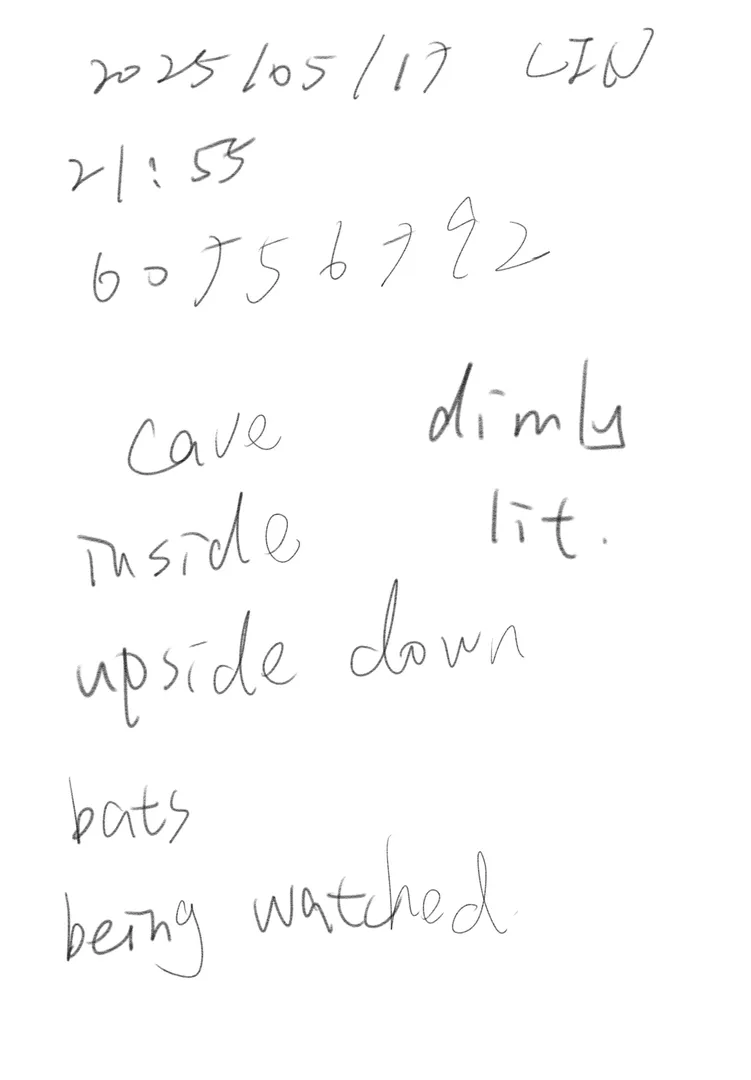 2025/05/17 LIN
21:55
60756792
cave dimly
inside lit.
upside down
bats
being watched.